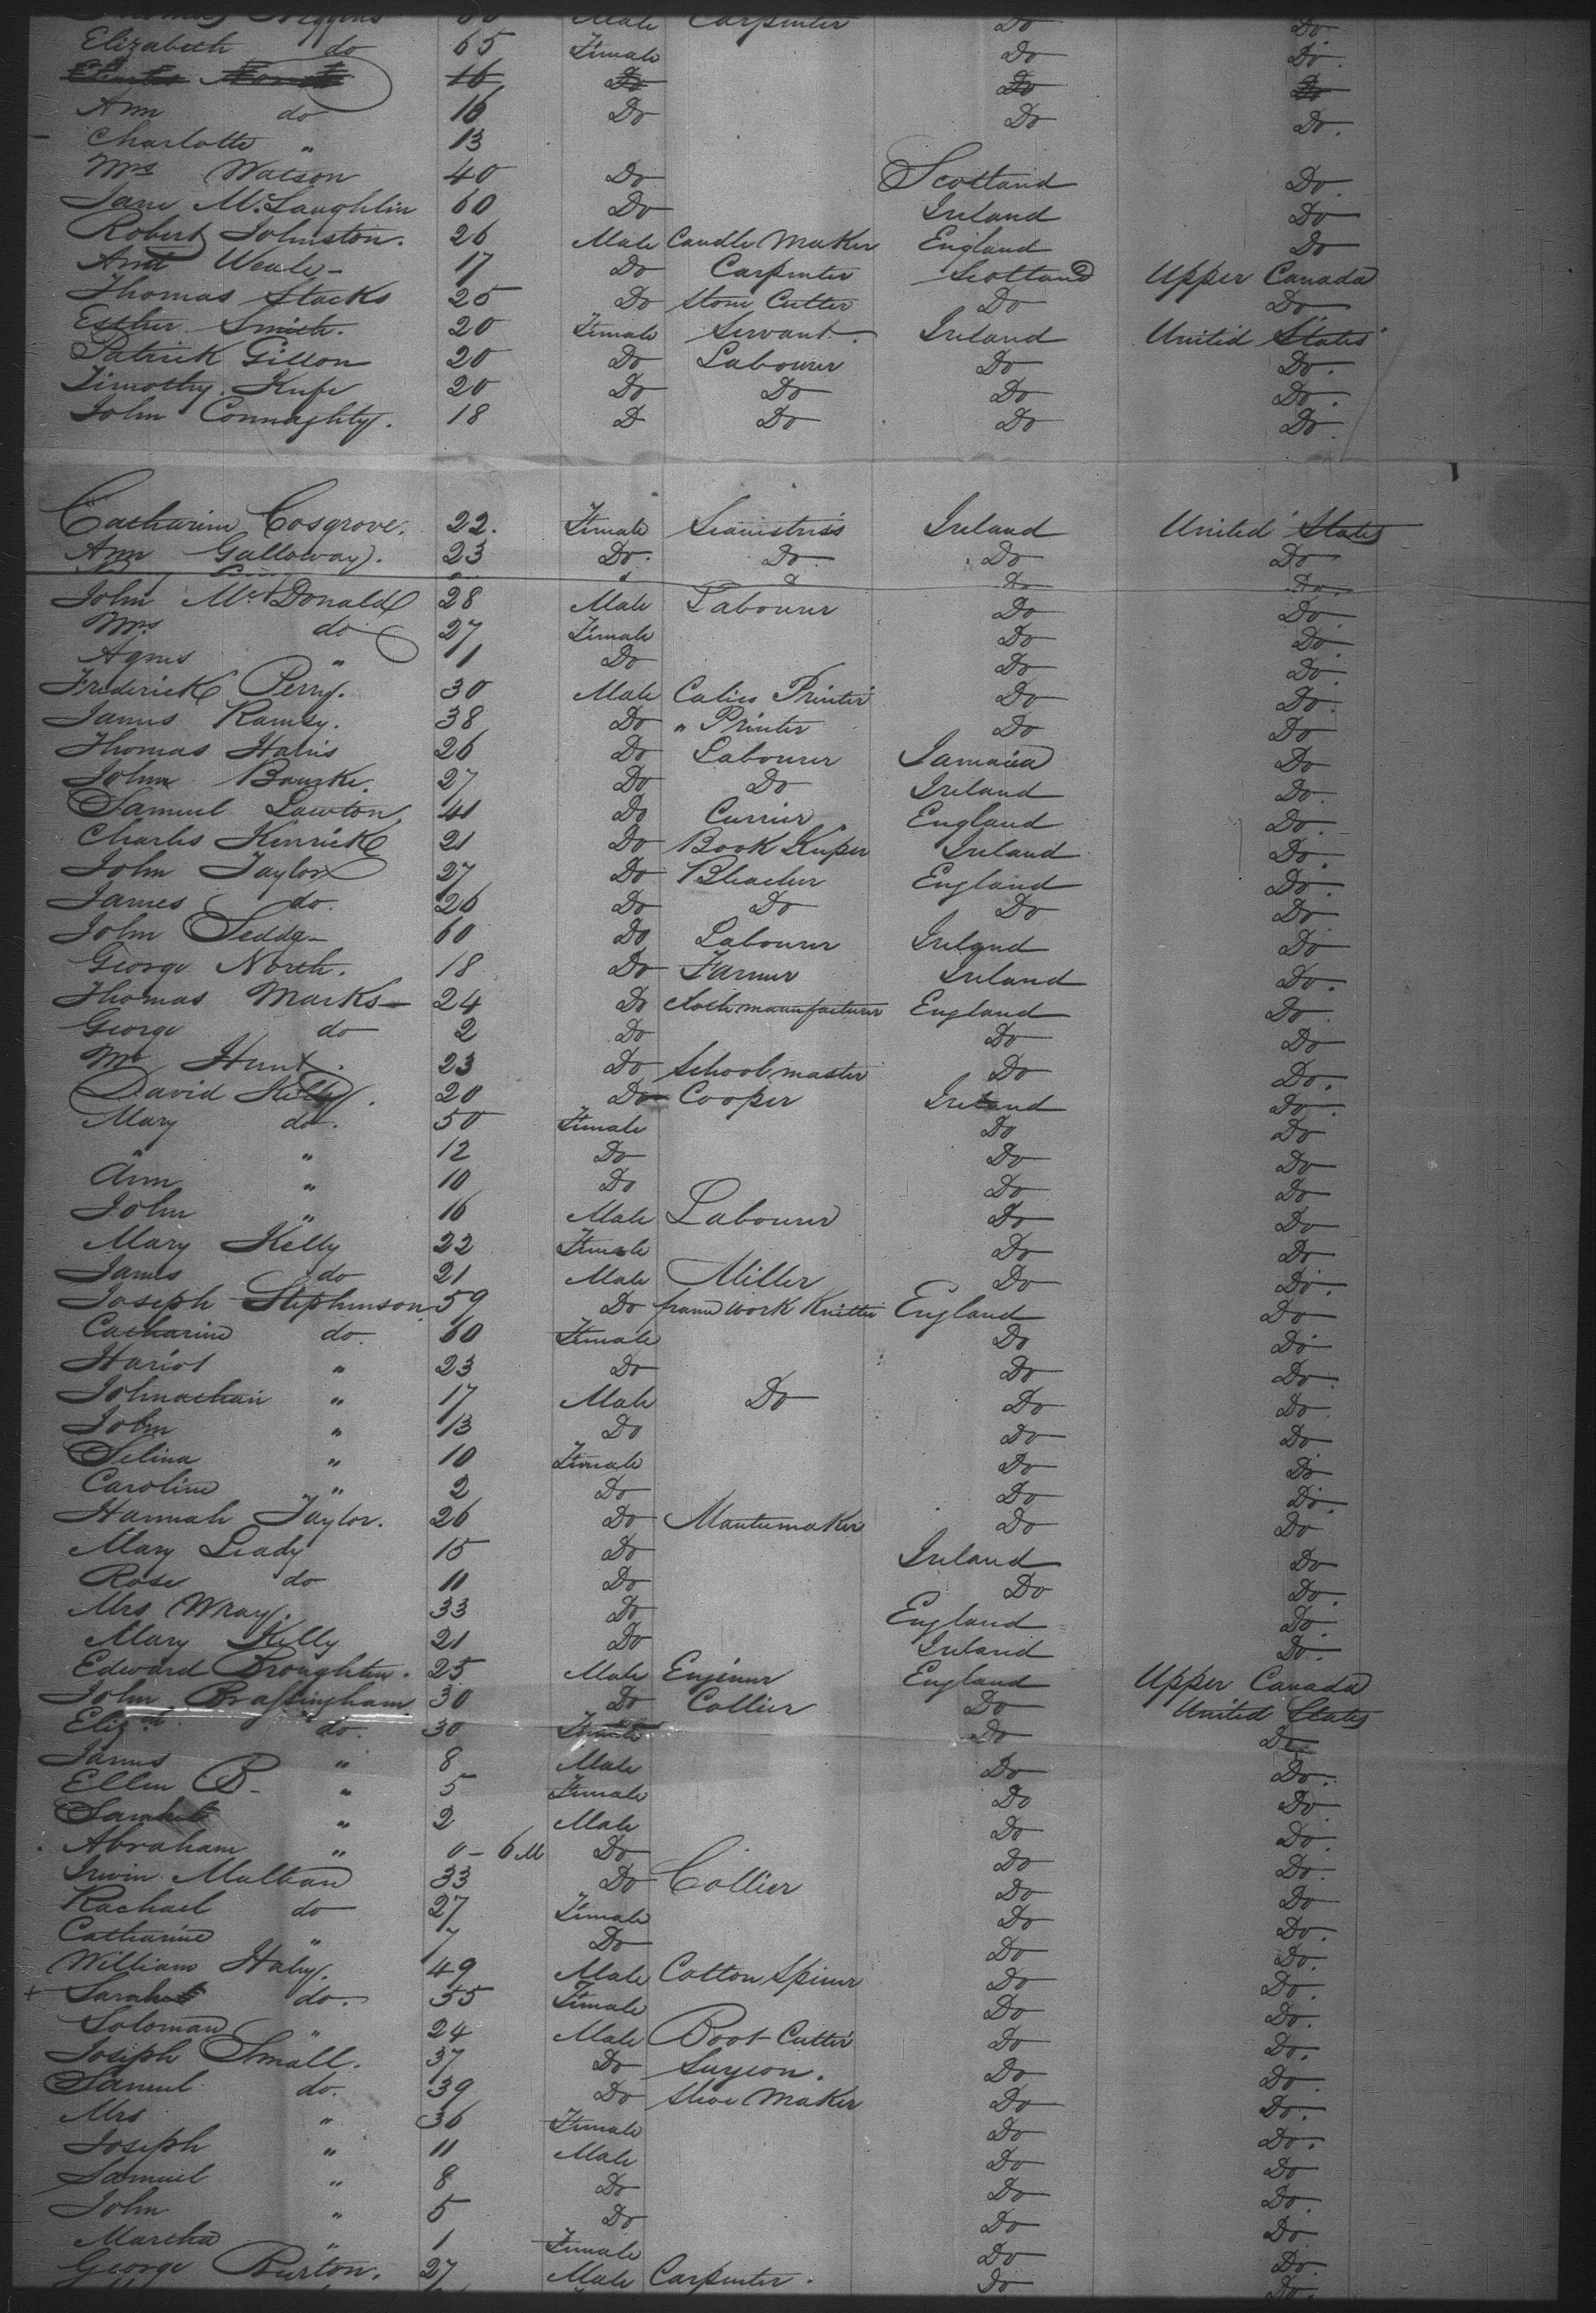 Higgins 60 Male Carpenter Do Do
Elizabeth do 65 Female Do Do
16 Do Do Do
Ann do 16 Do Do Do.
Charlotte " 13
Mrs Watson 40 Do Scotland Do
Jane McLaughlin 60 Do Ireland Do
Robert Johnston. 26 Male Candle Maker England Do
Weale 17 Do Carpenter Scotland Upper Canada
Thomas Stacks 25 Do Stone Cutter Do Do
Esther Smith. 20 Female Servant. Ireland United States
Patrick Gillon 20 Do Labourer Do Do.
Timothy Kufe 20 Do Do Do Do.
John Connaghty. 18 D Do Do Do.
Catharine Cosgrove. 22. Female Seamstress Ireland United States
Ann Galloway. 23 Do. Do Do Do
Do Do.
John McDonald 28 Male Labourer Do Do
Mrs do 27 Female Do Do
Agnes " 11 Do Do Do.
Frederick Perry. 30 Male Calico Printer Do Do.
James Ramsy. 38 Do " Printer Do Do
Thomas Haris 26 Do Labourer Jamaica Do
John Bourke. 27 Do Do Ireland Do.
Samuel Lawton 41 Do Currier England Do.
Charles Kinrick 21 Do Book Keeper Ireland Do.
John Taylor 27 Do Bleacher England Do.
James do. 26 Do Do Do Do
John Sedda 60 Do Labourer Ireland Do
George North. 18 Do Farmer Ireland Do.
Thomas Marks 24 Do Cloth manufacturer England Do.
George do 2 Do Do Do
Mr Hunt. 23 Do School master Do Do.
David Kelly. 20 Do Cooper Ireland Do.
Mary do. 50 Female Do Do
" 12 Do Do Do
Ann " 10 Do Do Do
John " 16 Male Labourer Do Do
Mary Kelly 22 Female Do Do
James do 21 Male Miller Do Do.
Joseph Stephenson 59 Do frame work Knitter England Do
Catharine do. 60 Female Do Do
Hariot " 23 Do Do Do.
Johnathain " 17 Male Do Do Do.
John " 13 Do Do Do
Selina " 10 Female Do Do
Caroline " 2 Do Do Do.
Hannah Taylor. 26 Do Mantumaker Do Do
Mary Leady 15 Do Ireland Do
Rose do 11 Do Do Do.
Mrs Wray. 33 Do England Do.
Mary Kelly 21 Do Ireland Do.
Edward Broughton. 25 Male Enjineer England Upper Canada
John Brassingham 30 Do Collier Do United States
Elizth do. 30 Female Do Do
James " 8 Male Do Do.
Ellen B " 5 Female Do Do
" 2 Male Do Do
Abraham " 0 - 6 M Do Do Do.
Irwin Multan 33 Do Collier Do Do
Rachael do 27 Female Do Do.
Catharine " 7 Do Do Do.
William Haley. 49 Male Cotton Spiner Do Do.
+ Sarah do. 55 Female Do Do.
Soloman " 24 Male Boot Cutter Do Do.
Joseph Small. 37 Do Surgeon. Do Do.
Samuel do. 39 Do Shoe Maker Do Do.
Mrs " 36 Female Do Do.
Joseph " 11 Male Do Do
Samuel " 8 Do Do Do.
John " 5 Do Do Do
Martha " 1 Female Do Do.
George Burton. 27 Male Carpenter. Do Do.